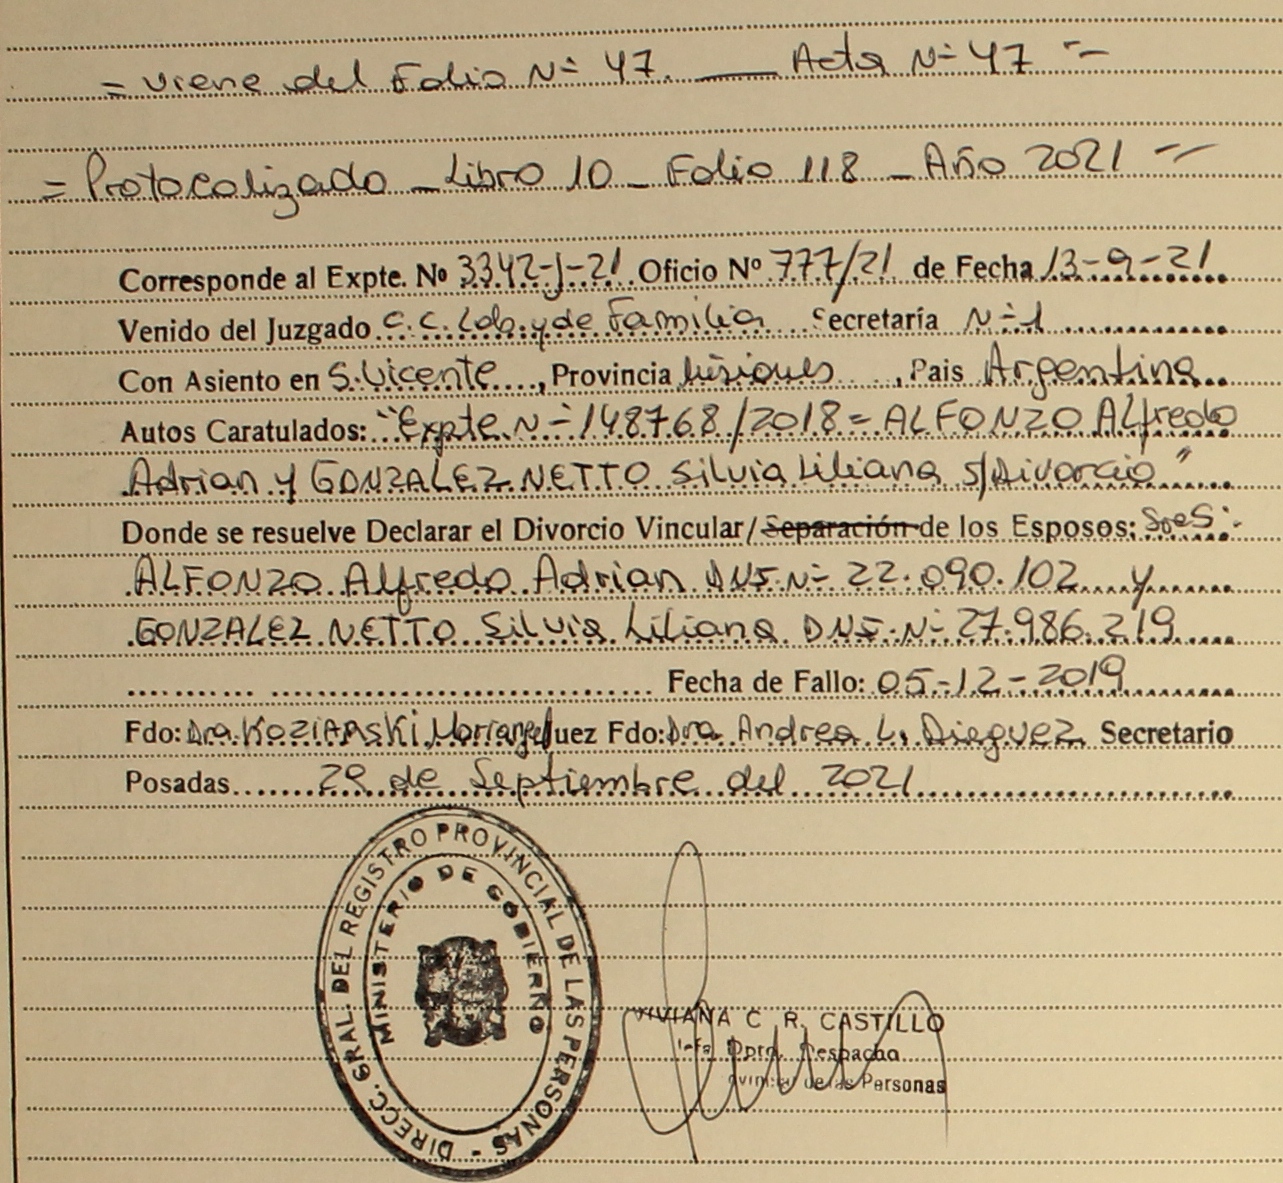 = viene del Folio Nº 47. ___ Acta Nº 47 =
= Protocolizado _ Libro 10 _ Folio 118 _ Año 2021 =
Corresponde al Expte. Nº 3342-J-21 Oficio Nº 777/21 de Fecha 13-9-21
Venido del Juzgado C.C. Lab. y de Familia Secretaría Nº 1
Con Asiento en S. Vicente, Provincia Misiones, Pais Argentina
Autos Caratulados: "Expte. Nº 148768/2018 = ALFONZO Alfredo
Adrian y GONZALEZ NETTO Silvia Liliana s/Divorcio"
Donde se resuelve Declarar el Divorcio Vincular/Separación de los Esposos: Sres:
ALFONZO Alfredo Adrian DNI. Nº 22.090.102 y
GONZALEZ NETTO Silvia Liliana DNI. Nº 27.986.219
Fecha de Fallo: 05-12-2019
Fdo: Dra. KOZIARSKI, Mariangel Juez Fdo: Dra. Andrea L. Dieguez Secretario
Posadas 29 de Septiembre del 2021
DIRECC. GRAL. DEL REGISTRO PROVINCIAL DE LAS PERSONAS -
MINISTERIO DE GOBIERNO
VIVIANA C R. CASTILLO
Dpto. Despacho
de las Personas